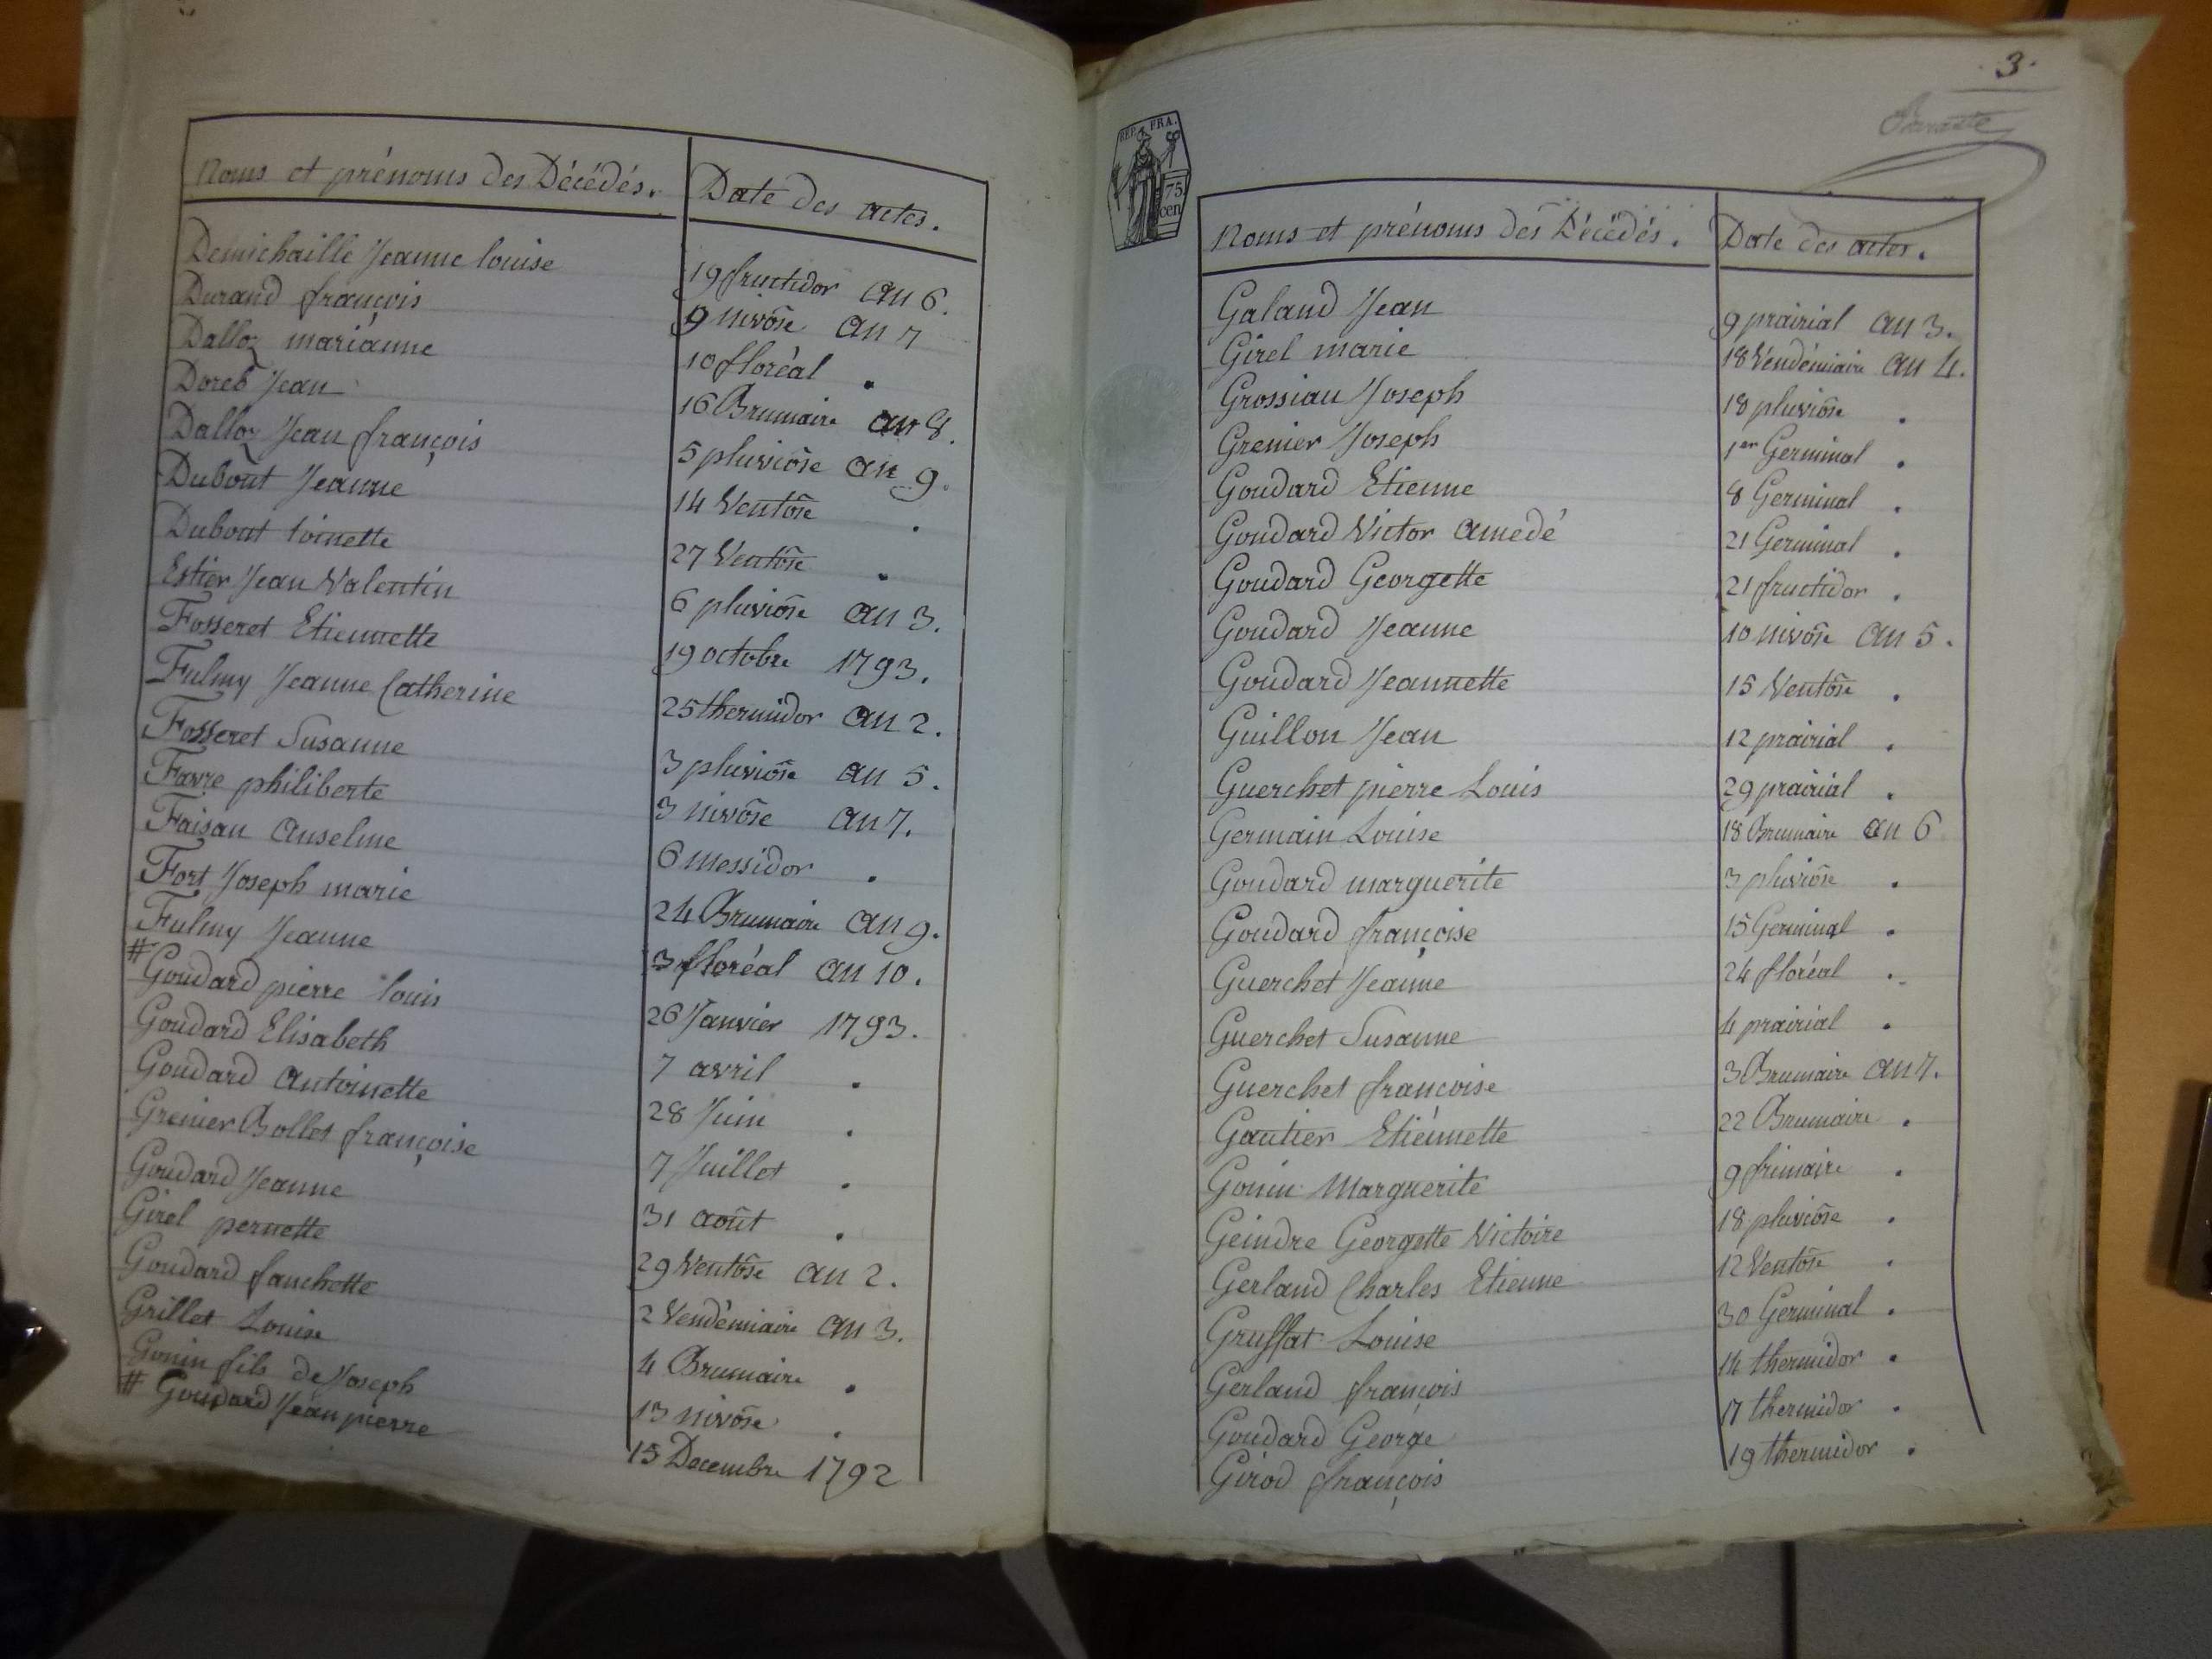 Noms et prénoms des Décédés. Date des actes.
Demichaille Jeanne louise 19 fructidor an 6.
Durand françois 9 nivôse an 7
Dalloz marianne 10 floréal .
Doreb Jean 16 Brumaire an 8.
Dalloz Jean françois 5 pluviôse an 9.
Dubout Jeanne 14 Ventôse .
Dubout toinette 27 Ventôse .
Estier Jean Valentin 6 pluviôse an 3.
Fosseret Etiennette 19 octobre 1793.
Fulmy Jeanne Catherine 25 thermidor an 2.
Fosseret Susanne 3 pluviôse an 5.
Favre philiberte 3 nivôse an 7.
Faisan Anselme 6 messidor .
Fort Joseph marie 24 Brumaire an 9.
Fulmy Jeanne 3 floréal an 10.
# Goudard pierre louis 26 Janvier 1793.
Goudard Elisabeth 7 avril .
Goudard Antoinette 28 Juin .
Grenier Bollet françoise 7 Juillet .
Goudard Jeanne 31 août .
Girel pernette 29 Ventôse an 2.
Goudard fanchette 2 Vendémiaire an 3.
Grillet Louise 4 Brumaire .
Gonin fils de Joseph 13 nivôse .
# Goudard Jean pierre 15 Decembre 1792
3.
REP. FRA.
75
cen
Noms et prénoms des Décédés. Date des actes.
Galand Jean 9 prairial an 3.
Girel marie 18 Vendémiaire an 4.
Grossiau Joseph 18 pluviôse .
Grenier Joseph 1er Germinal .
Goudard Etienne 8 Germinal .
Goudard Victor Amedé 21 Germinal .
Goudard Georgette 21 fructidor .
Goudard Jeanne 10 nivôse an 5.
Goudard Jeannette 15 Ventôse .
Guillon Jean 12 prairial .
Guerchet pierre Louis 29 prairial .
Germain Louise 18 Brumaire an 6
Goudard marguerite 3 pluviôse .
Goudard françoise 15 Germinal .
Guerchet Jeanne 24 floréal .
Guerchet Susanne 4 prairial .
Guerchet francoise 3 Brumaire an 7.
Gautier Etiennette 22 Brumaire .
Gonin Marguerite 9 frimaire .
Geindre Georgette Victoire 18 pluviôse .
Gerland Charles Etienne 12 Ventôse .
Gruffat Louise 30 Germinal .
Gerland françois 14 thermidor .
Goudard George 17 thermidor .
Girod françois 19 thermidor .